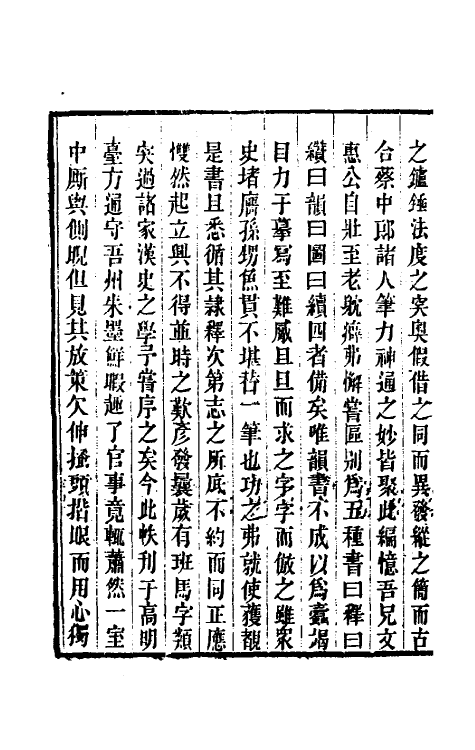 之鑪錘法度之突奥假借之同而異發縱之簡而古
合蔡中郎諸人筆力神通之妙皆聚此編憶吾兄文
惠公自壯至老躭癖弗懈嘗區别爲五種書曰釋曰
纘曰韻曰圖曰續四者備矣唯韻書不成以爲蠧竭
目力于摹寫至難風且旦而求之字字而倣之雖衆
史堵廧孫甥魚貫不堪替一筆也功之弗就使獲覩
是書且悉循其隷釋次第志之所底不約而同正應
慢然起立興不得並時之歎彦發曩歲有班馬字類
矣過諸家漢史之學予嘗序之矣今此帙刋于高明
臺方逎守吾州朱墨鮮暇趣了官事竟輒蕭然一室
中厮與側睨但見其放策欠伸搔頭揩眼而用心獨